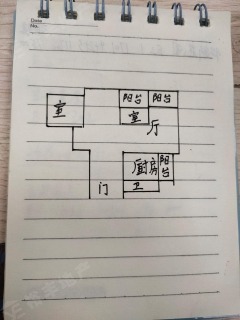 Date
No.
阳台 阳台
室
室
厅
厨房
阳台
卫
门